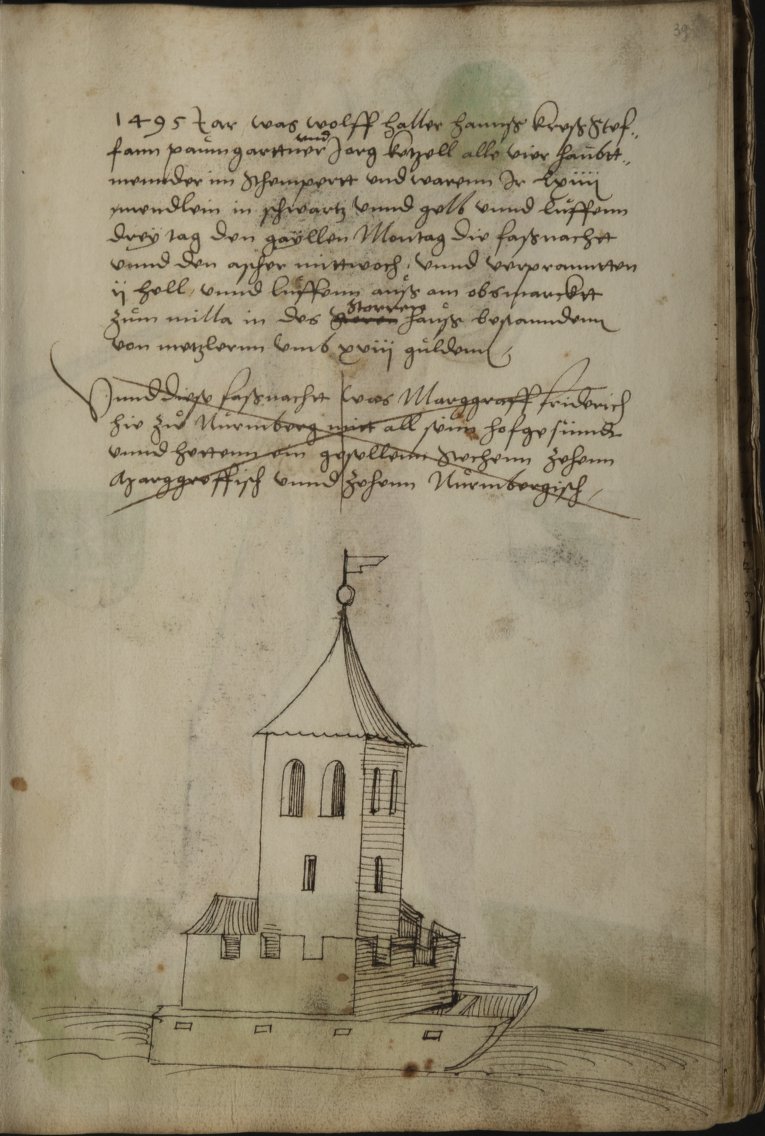 39
1495 Jar was wolff haller hannss kress Stef-
fann paumgarttner vnd Jorg ketzell alle vier haubt-
menner im Schempertt vnd warenn Jr Lxiiij
mendlein in schwartz vnnd gelb vnnd luffenn
drey tag den gayllen Montag die fassnachtt
vnnd den ascher mittwoch, vnnd verpranntten
ij hell, vnnd luffenn auss am obsmarcktt
zum milla in des Storren hauss bestanndenn
von metzlernn vmb xviij guldenn,
Vnnd diese fassnachtt was Marggraff friderich
hie zu Nurmberg mitt all seim hofgesinndt
vnnd hettenn ein gesellenn Stechenn zehenn
Marggreffisch vnnd zehenn Nurmbergisch,